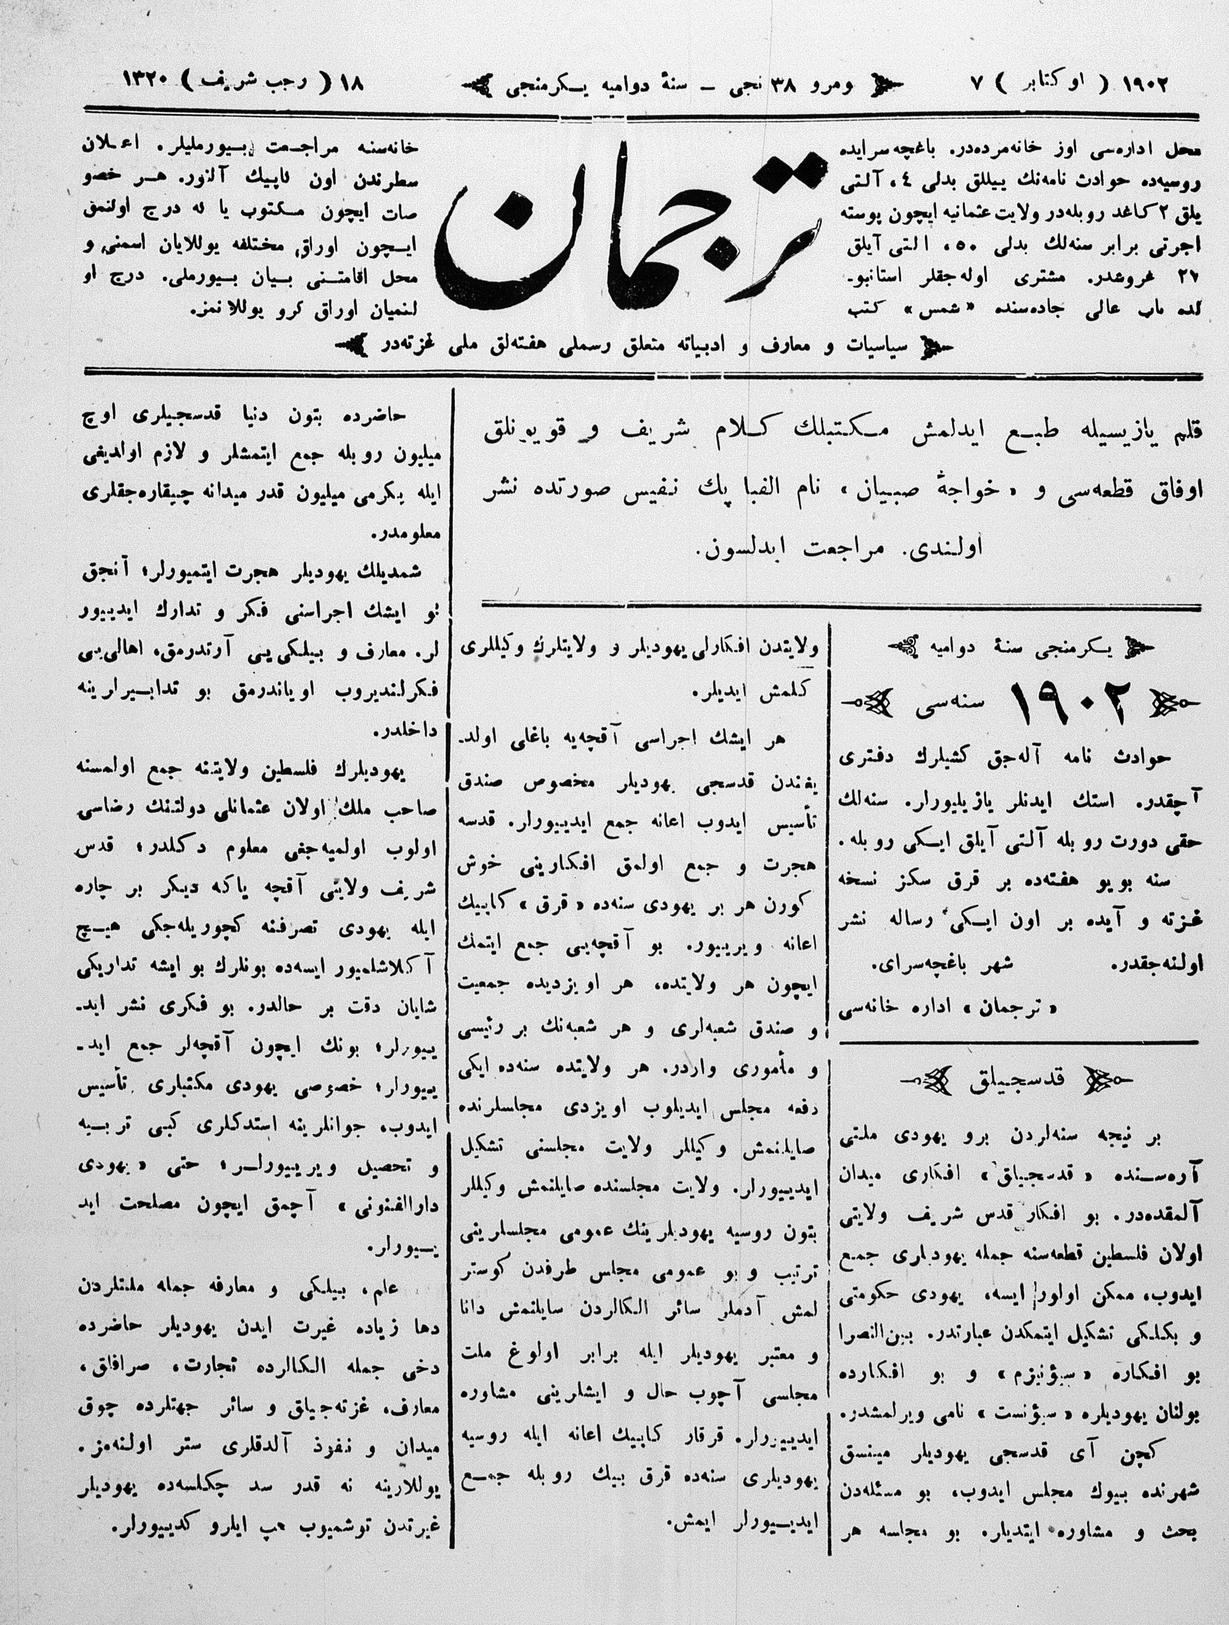 ١٩٠٢ ( اوكتابر ) ٧
ومرو ٣٨ نجی ــ سنۀ دوامیه یـكرمنجی
١٨ ( رجب شریف ) ١٣٢٠
محل اداره‌سی اوز خانه‌مرده‌در. باغچه‌سرایده
روسیه‌ده حوادث نامه‌نك ییللق بدلی ٤، آلتی
یلق ٢ كاغد روبله‌در ولایت عثمانیه ایچون پوسته
اجرتی برابر سنه‌لك بدلی ٥٠، التی آیلق
٢٧ غروشدر. مشتری اوله‌جقلر استانبو۔
لده باب عالی جاده‌سنده «شمس» كتب
ترجمان
خانه‌سنه مراجعت بیورملیلر. اعلان
سطرندن اون كاپیك آلنور. هر خصو
صات ایچون مكتوب یا له درج اولنمق
ایچون اوراق مختلفه یوللایان اسمنی و
محل اقامتنی بیان بیورملی. درج او
لنمیان اوراق كرو یوللانمز.
سیاسیات و معارف و ادبیاته متعلق رسملی هفته‌لق ملی غزته‌در
قلم یازیسیله طبع ایدلمش مكتبلك كلام شریف و قویونلق
اوفاق قطعه‌سی و «خواجۀ صبیان» نام الفبا پك نفیس صورتده نشر
اولندی. مراجعت ایدلسون.
یكرمنجی سنۀ دوامیه
١٩٠٢ سنه‌سی
حوادث نامه آله‌جق كشیلرك دفتری
آچقدر. استك ایدنلر یازیلیورلر. سنه‌لك
حقی دورت روبله آلتی آیلق ایكی روبله.
سنه بویو هفته‌ده بر قرق سكز نسخه
غزته و آیده بر اون ایكی رساله نشر
اولنه‌جقدر. شهر باغچه‌سرای.
«ترجمان» اداره خانه‌سی
قدسجیلق
بر نیجه سنه‌لردن برو یهودی ملتی
آره‌سنده «قدسجیلق» افكاری میدان
آلمقده‌در. بو افكار قدس شریف ولایتی
اولان فلسطین قطعه‌سنه جمله یهودیلری جمع
ایدوب، ممكن اولور ایسه، یهودی حكومتی
و بكلكی تشكیل ایتمكدن عبارتدر. بین‌النصرا
بو افكاره «سیؤنیزم» و بو افكارده
بولنان یهودیلره «سیؤنست» نامی ویرلمشدر.
كچن آی قدسجی یهودیلر مینسق
شهرنده بیوك مجلس ایدوب، بو مسئله‌دن
بحث و مشاوره ایتدیلر. بو مجلسه هر
ولایتدن افكارلی یهودیلر و ولایتلرك وكیللری
كلمش ایدیلر.
هر ایشك اجراسی آقچه‌یه باغلی اولد۔
یغندن قدسجی یهودیلر مخصوص صندق
تأسیس ایدوب اعانه جمع ایدییورلر. قدسه
هجرت و جمع اولمق افكارینی خوش
كورن هر بر یهودی سنه‌ده «قرق» كاپیك
اعانه ویرییور. بو آقچه‌یی جمع ایتمك
ایچون هر ولایتده، هر اویزدیده جمعیت
و صندق شعبه‌لری و هر شعبه‌نك بر رئیسی
و مأموری واردر. هر ولایتده سنه‌ده ایكی
دفعه مجلس ایدیلوب اویزدی مجلسلرنده
صایلنمش وكیللر ولایت مجلسنی تشكیل
ایدییورلر. ولایت مجلسنده صایلنمش وكیللر
بتون روسیه یهودیلرینك عمومی مجلسلرینی
ترتیب و بو عمومی مجلس طرفدن كوستر
لمش آدملر سائر الكالردن سایلنمش دانا
و معتبر یهودیلر ایله برابر اولوغ ملت
مجلسی آچوب حال و ایشلرینی مشاوره
ایدییورلر. قرقار كاپیك اعانه ایله روسیه
یهودیلری سنه‌ده قرق بیك روبله جمع
ایدییورلر ایمش.
حاضرده بتون دنیا قدسجیلری اوچ
میلیون روبله جمع ایتمشلر و لازم اولدیغی
ایله یكرمی میلیون قدر میدانه چیقاره‌جقلری
معلومدر.
شمدیلك یهودیلر هجرت ایتمیورلر؛ آنجق
بو ایشك اجراسنی فكر و تدارك ایدییور
لر. معارف و بیلكی‌یی آرتدرمق، اهالی‌یی
فكرلندیروب اویاندرمق بو تدابیرلرینه
داخلدر.
یهودیلرك فلسطین ولایتنه جمع اولمسنه
صاحب ملك اولان عثمانلی دولتنك رضاسی
اولوب اولمیه‌جغی معلوم دكلدر؛ قدس
شریف ولایتی آقچه یاكه دیكر بر چاره
ایله یهودی تصرفنه كچوریله‌جكی هیچ
آكلاشلمیور ایسه‌ده بونلرك بو ایشه تداریكی
شایان دقت بر حالدر. بو فكری نشر اید۔
ییورلر؛ بونك ایچون آقچه‌لر جمع اید۔
ییورلر؛ خصوصی یهودی مكتبلری تأسیس
ایدوب، جوانلرینه استدكلری كبی تربیه
و تحصیل ویرییورلر؛ حتی «یهودی
دارالفنونی» آچمق ایچون مصلحت اید
ییورلر.
علم، بیلكی و معارفه جمله ملتلردن
دها زیاده غیرت ایدن یهودیلر حاضرده
دخی جمله الكالرده تجارت، صرافلق،
معارف، غزته‌جیلق و سائر جهتلرده چوق
میدان و نفوذ آلدقلری ستر اولنه‌مز.
یوللارینه نه قدر سد چكلسه‌ده یهودیلر
غیرتدن توشمیوب هپ ایلرو كدییورلر.